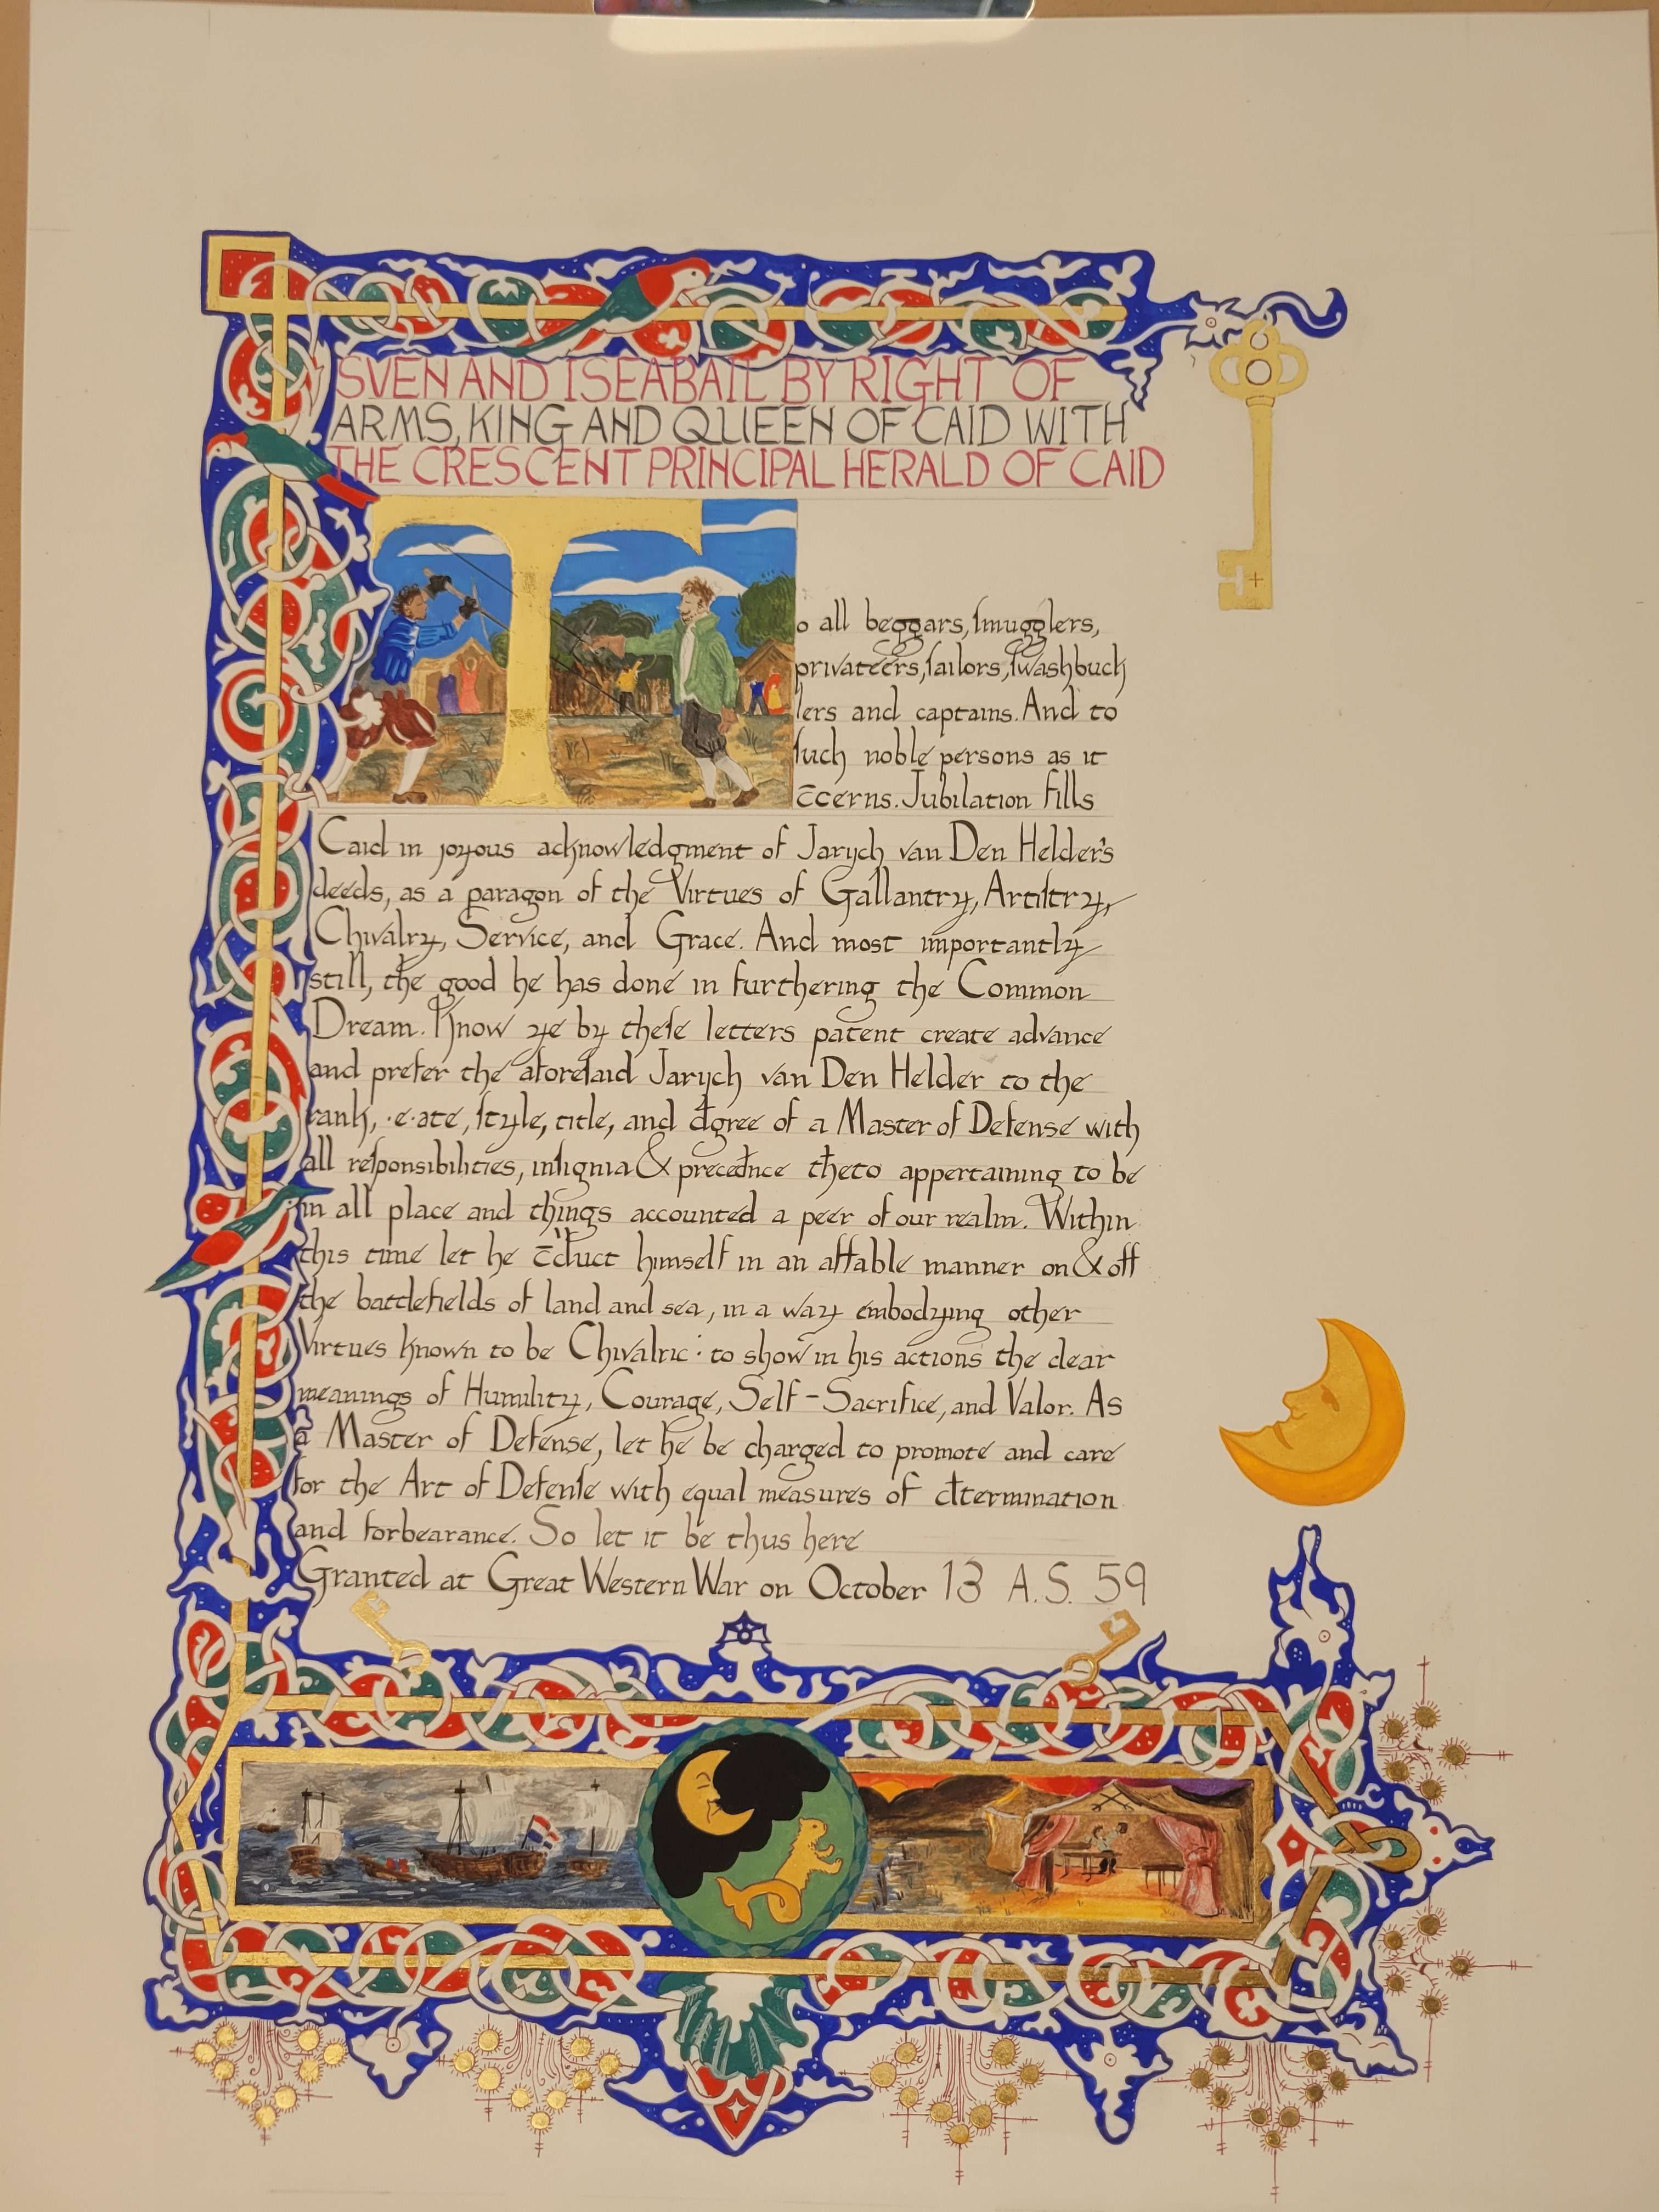 SVEN AND ISEABAIL BY RIGHT OF
ARMS, KING AND QUEEN OF CAID WITH
THE CRESCENT PRINCIPAL HERALD OF CAID
To all beggars, ſmugglers,
privateers, ſailors, ſwashbuck
lers and captains. And to
ſuch noble persons as it
c̄cerns. Jubilation fills
Caid in joyous acknowledgment of Jarych van Den Helder's
deeds, as a paragon of the Virtues of Gallantry, Artiſtry,
Chivalry, Service, and Grace. And most importantly
still, the good he has done in furthering the Common
Dream. Know ye by theſe letters patent create advance
and prefer the aforeſaid Jarych van Den Helder to the
rank, ·e·ate, ſtyle, title, and đgree of a Master of Defense with
all reſponsibilities, inſignia & preceđnce theto appertaining to be
in all place and things accounted a peer of our realm. Within
this time let he c̄đuct himself in an affable manner on & off
the battlefields of land and sea, in a way embodying other
Virtues known to be Chivalric : to show in his actions the clear
meanings of Humility, Courage, Self-Sacrifice, and Valor. As
a Master of Defense, let he be charged to promote and care
for the Art of Defenſe with equal measures of đtermination
and forbearance. So let it be thus here
Granted at Great Western War on October 13 A.S. 59